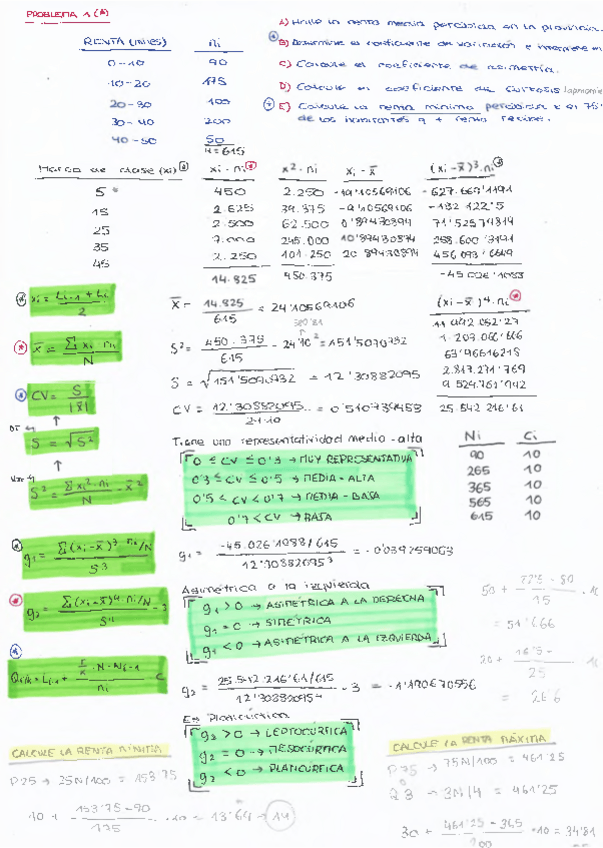 PROBLEMA 1 (A)
A) Halle la renta media percibida en la provincia.
B) Determine el coeficiente de variación e interprete
C) Calcule el coeficiente de asimetría.
D) Calcule el coeficiente de curtosis
E) Calcule la renta mínima percibida x el 75%
de los habitantes q + renta recibe.
RENTA (miles) ni
0-10 90
10-20 175
20-30 100
30-40 200
40-50 50
N=615
Marca de clase (xi) xi · ni x²·ni xi - x̄ (xi-x̄)³·ni
5 450 2.250 -19'10569106 -627.669'1191
15 2.625 39.375 -9'10569106 -132 122'5
25 2.500 62.500 0'89430894 71'52574814
35 7.000 245.000 10'89430894 258.600'3191
45 2.250 101.250 20'89430894 456 093'6649
14.825 450.375 -45 026'1088
xi = Li-1 + Li / 2
x̄ = Σ xi · ni / N
CV = S / |x̄|
DT
S = √S²
Var
S² = Σ xi²·ni / N - x̄²
g1 = Σ(xi-x̄)³·ni/N / S³
g2 = Σ(xi-x̄)⁴·ni/N / S⁴ - 3
x̄ = 14.825 / 615 = 24'10569106
S² = 450.375 / 615 - 24'10² = 151'5070732
S = √151'5070732 = 12'30882095
CV = 12'30882095 / 24'10 = 0'510739453
(xi-x̄)⁴·ni
11 992 052'27
1.203.066'666
63'96616218
2.817.271'769
9 524.761'942
25.542 216'61
Ni Ci
90 10
265 10
365 10
565 10
615 10
Tiene una representatividad medio-alta
0 ≤ CV ≤ 0'3 → MUY REPRESENTATIVA
0'3 ≤ CV ≤ 0'5 → MEDIA-ALTA
0'5 ≤ CV < 0'7 → MEDIA-BAJA
0'7 < CV → BAJA
g1 = -45.026'1088/615 / 12'30882095³ = -0'039259063
Asimétrica a la izquierda
g1 > 0 → ASIMÉTRICA A LA DERECHA
g1 = 0 → SIMÉTRICA
g1 < 0 → ASIMÉTRICA A LA IZQUIERDA
g2 = 25.542.216'61/615 / 12'30882095⁴ - 3 = -1'190670556
Es Platicúrtica
g2 > 0 → LEPTOCÚRTICA
g2 = 0 → MESOCÚRTICA
g2 < 0 → PLATICÚRTICA
= 51'666
25
= 26'6
CALCULE LA RENTA MÍNIMA
P25 → 25N/100 = 153'75
10 + 153'75-90 / 175 · 10 = 13'64 → 14
CALCULE LA RENTA MÁXIMA
P75 → 75N/100 = 461'25
Q3 → 3N/4 = 461'25
30 + 461'25 - 365 / 200 · 10 = 34'81